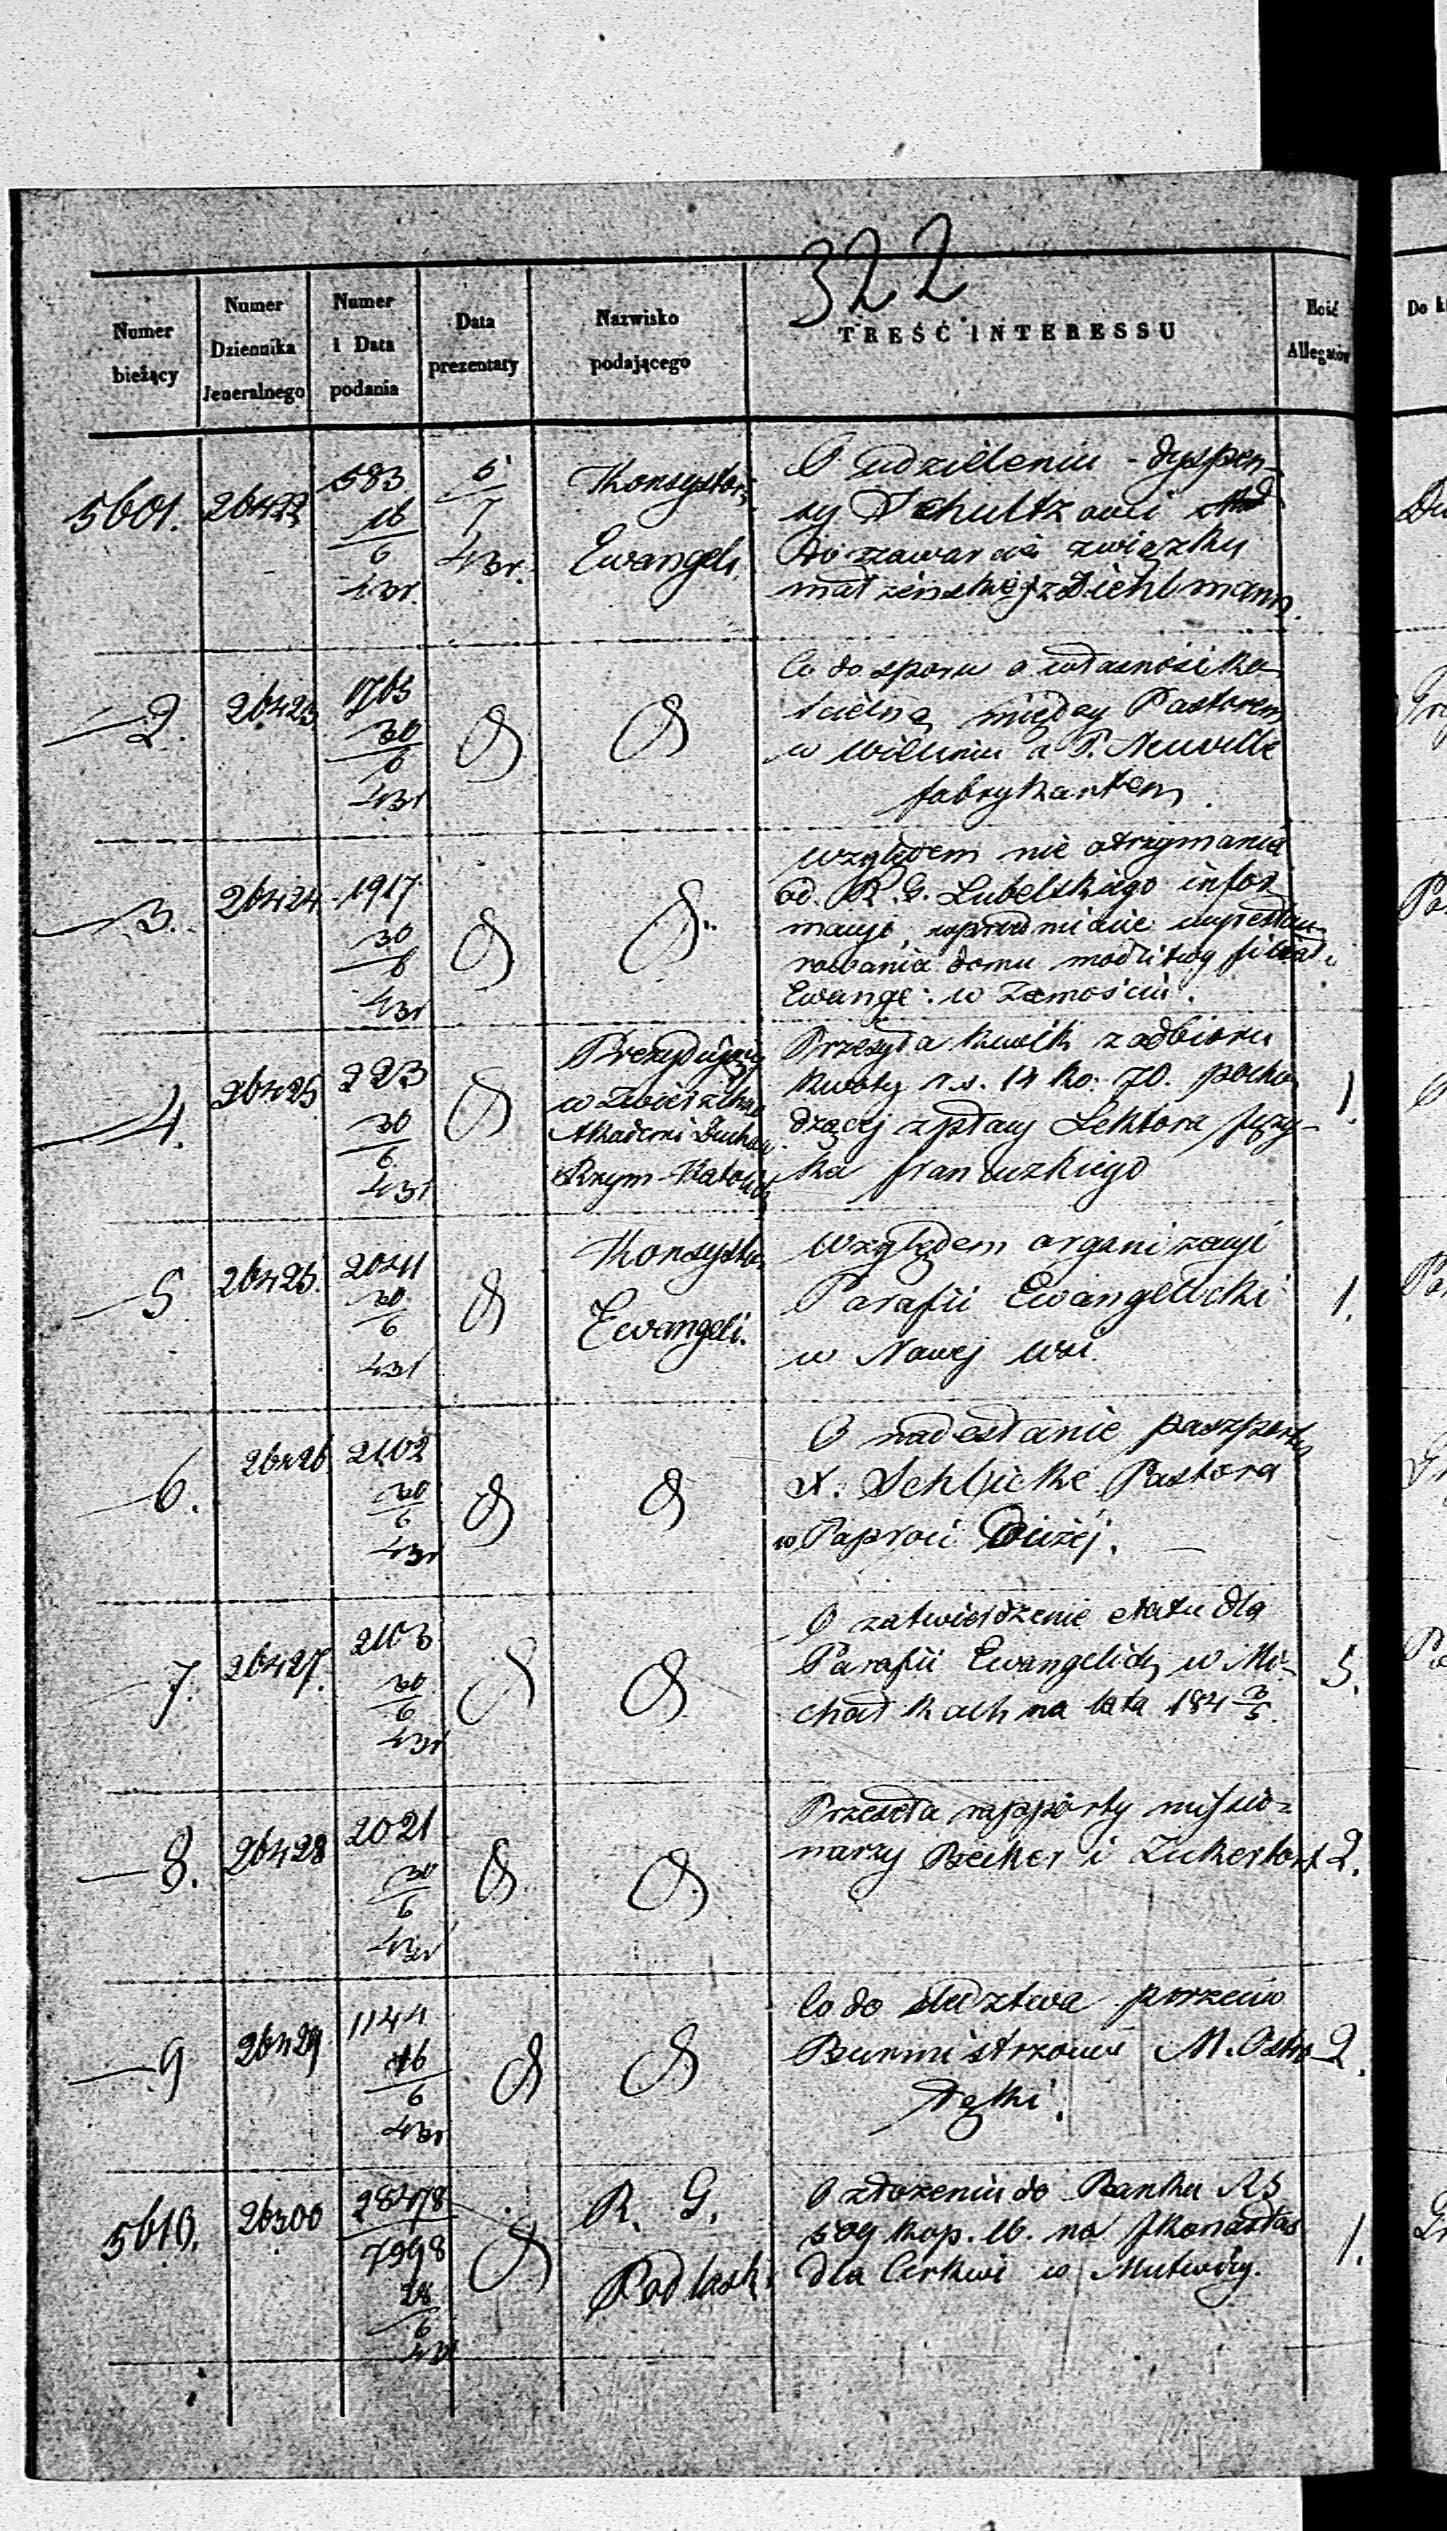 322
Numer bieżący
Numer Dziennika Jeneralnego
Numer i Data podania
Data prezentaty
Nazwisko podającego
TREŚĆ INTERESSU
Ilość Allegatów
Do k
5601.
26422
583
16
6
43r.
5
7
43r.
Konsystorz
Ewangeli.
O udzieleniu dyspen-
sy Schultzowi
do zawarcia związku
małżeńskiej z Diehlmann.
2.
26423
1763
30
6
43r
Co do sporu o własność ko
ścielną między Pastorem
w Wieluniu a P. Neuville
fabrykantem.
3.
26424
1917
30
6
43r
Względem nie otrzymania
od R. G. Lubelskiego infor
macyi w przedmiocie wyrestau-
rowania domu modlitwy filiał.
Ewange: w Zamościu.
4.
26425
223
30
6
43r
Prezydujący
w Zwierzchn
Akademi Duchow
Rzym-Katolick
Przesyła kwitk z odbioru
kwoty r.s. 14 ko: 70. pocho
dzącej z płacy Lektora Języ-
ka francuzkiego
1.
5
26425.
2041
30
6
43r
Konsystor
Ewangeli.
Względem organizacyi
Parafii Ewangelicki
w Nowej wsi
1.
6.
26426
2102
30
6
43r
O nadesłanie paszportu
X. Schlicke Pastora
w Paproci Dużej.
7.
26427.
2103
30
6
43r
O zatwierdzenie etatu dla
Parafii Ewangelick w Mi-
chałkach na lata 184 3/5.
5.
8.
26428
2021
30
6
43r
Przesyła rapporty missio-
narzy Becker i Zukertort
2.
9
26429
1144
16
6
43r
Co do śledztwa przeciw
Burmistrzowi M. Ostro
łęki.
2.
5610.
26500
28478
7998
28
6
43r
R. G.
Podlaski
O złożeniu do Banku RS
509 kop. 16. na Ikonastas
dla Cerkwi w
1.